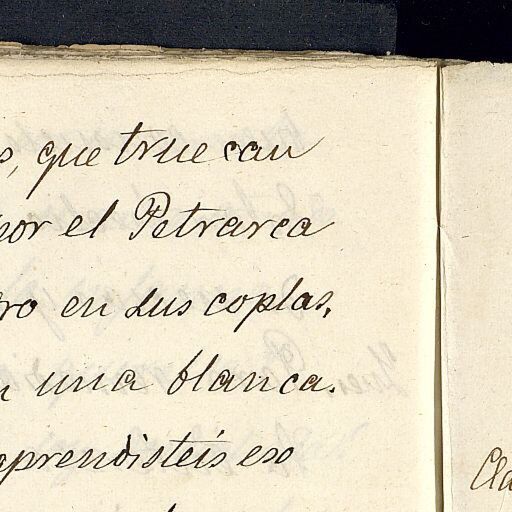 que truecan
por el Petrarca
en sus coplas,
una blanca.
aprendisteis eso